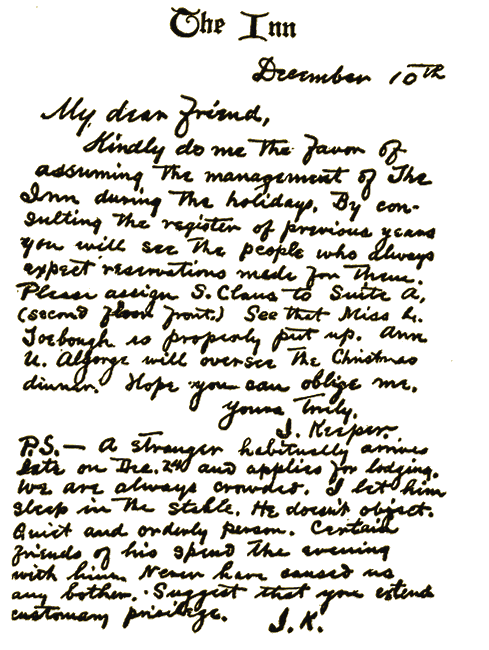 The Inn
December 10th
My dear Friend,
Kindly do me the favor of
assuming the management of The
Inn during the holidays. By con-
sulting the register of previous years
you will see the people who always
expect reservations made for them.
Please assign S. Claus to Suite A,
(second floor front.) See that Miss L.
Toebough is properly put up. Ann
U. Algorge will oversee the Christmas
dinner. Hope you can oblige me.
Yours Truly,
I. Keeper.
P.S. — A stranger habitually arrives
late on Dec. 24 and applies for lodging.
We are always crowded. I let him
sleep in the stable. He doesn't object.
Quiet and orderly person. Certain
friends of his spend the evening
with him. Never have caused us
any bother. Suggest that you extend
customary privilege.
I.K.